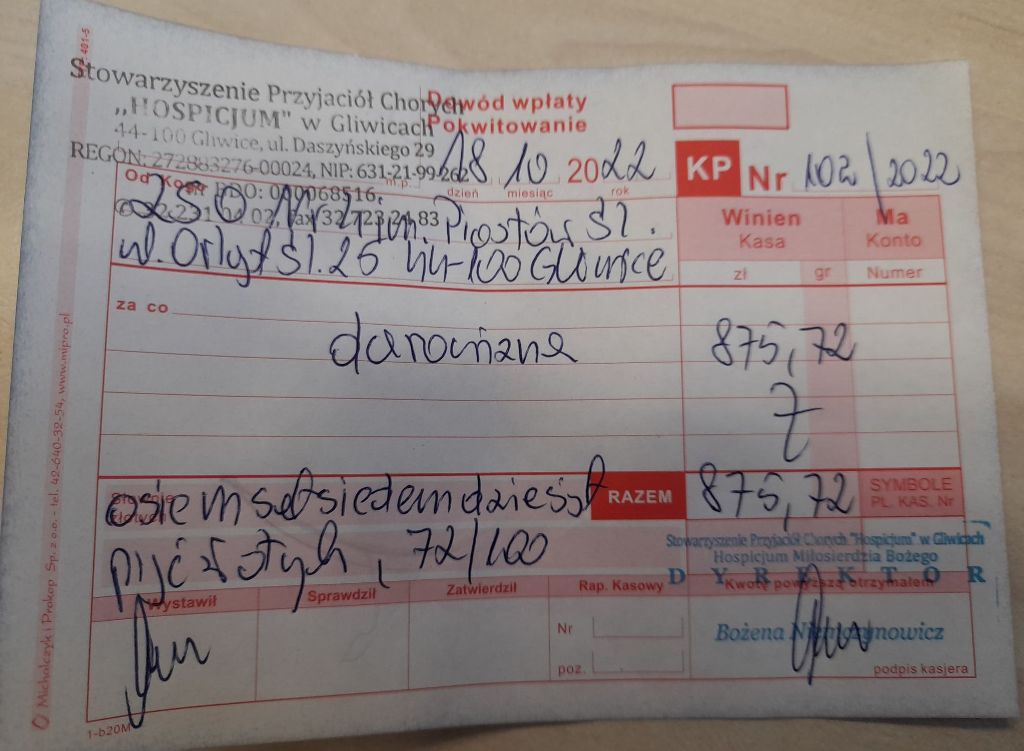 401-5
Stowarzyszenie Przyjaciół Chorych
„HOSPICJUM" w Gliwicach
44-100 Gliwice, ul. Daszyńskiego 29
REGON: 272883276-00024, NIP: 631-21-99-262
Dowód wpłaty
Pokwitowanie
18 10 2022
dzień miesiąc rok
KP Nr 103/2022
Od Kogo
Piastów Śl.
ul. Orląt Śl. 25 44-100 Gliwice
Winien
Kasa
Ma
Konto
zł gr Numer
za co
darowizna 875,72
osiemset siedemdziesiąt
RAZEM 875,72
SYMBOLE
PL. KAS. Nr
pięć złotych, 72/100
Stowarzyszenie Przyjaciół Chorych "Hospicjum" w Gliwicach
Hospicjum Miłosierdzia Bożego
DYREKTOR
Kwotę powyższą otrzymałem
Wystawił Sprawdził Zatwierdził Rap. Kasowy
Nr
poz.
Bożena
podpis kasjera
1-b20M
© Michalczyk i Prokop Sp. z o.o. - tel. 42-640-32-54, www.mipro.pl